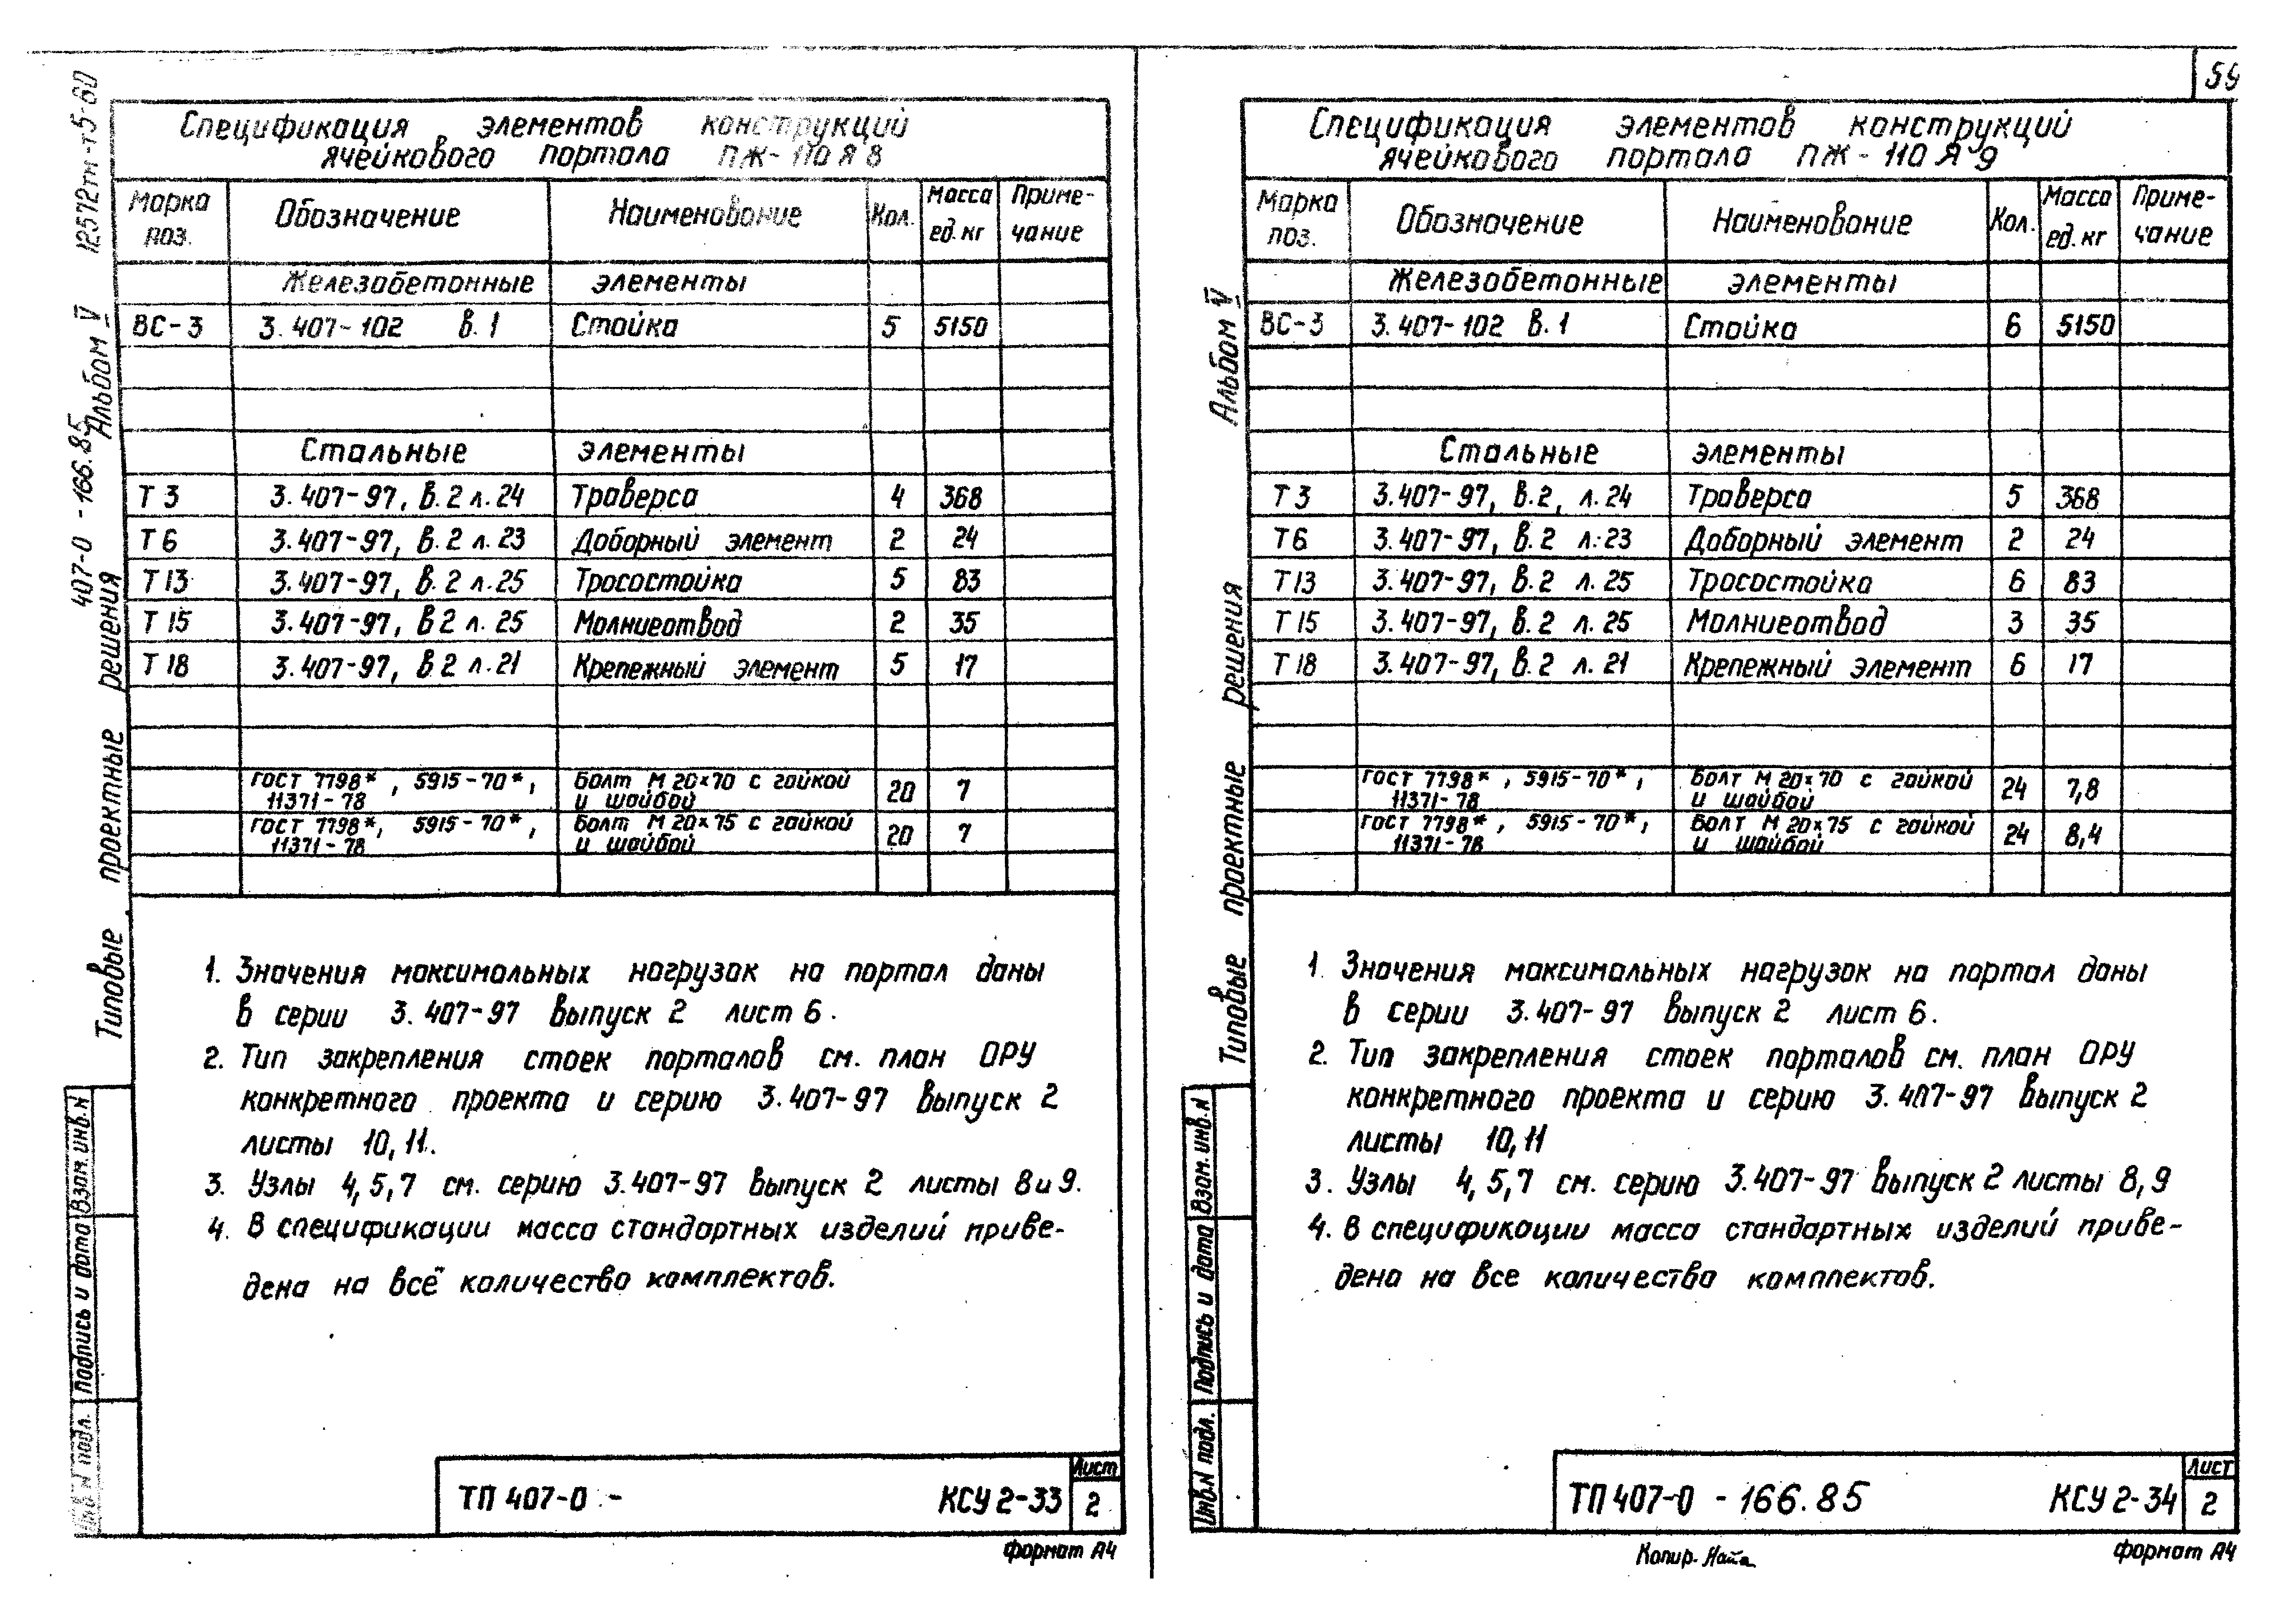 Спецификация элементов конструкций
ячейкового портала ПЖ-110Я8
Марка поз. Обозначение Наименование Кол. Масса ед. кг Приме-чание
Железобетонные элементы
ВС-3 3.407-102 в.1 Стойка 5 5150
Стальные элементы
Т3 3.407-97, в.2 л.24 Траверса 4 368
Т6 3.407-97, в.2 л.23 Доборный элемент 2 24
Т13 3.407-97, в.2 л.25 Тросостойка 5 83
Т15 3.407-97, в2 л.25 Молниеотвод 2 35
Т18 3.407-97, в.2 л.21 Крепежный элемент 5 17
ГОСТ 7798*, 5915-70*, Болт М20х70 с гайкой 20 7
11371-78 и шайбой
ГОСТ 7798*, 5915-70*, Болт М20х75 с гайкой 20 7
11371-78 и шайбой
1. Значения максимальных нагрузок на портал даны
в серии 3.407-97 выпуск 2 лист 6.
2. Тип закрепления стоек порталов см. план ОРУ
конкретного проекта и серию 3.407-97 выпуск 2
листы 10,11.
3. Узлы 4,5,7 см. серию 3.407-97 выпуск 2 листы 8 и 9.
4. В спецификации масса стандартных изделий приве-
дена на всё количество комплектов.
ТП 407-0 - КСУ2-33 Лист 2
формат А4
12572тм-т5-60
407-0-166.85
Типовые проектные решения Альбом V
Инв.N подл. Подпись и дата Взам.инв.N
59
Спецификация элементов конструкций
ячейкового портала ПЖ-110Я9
Марка поз. Обозначение Наименование Кол. Масса ед. кг Приме-чание
Железобетонные элементы
ВС-3 3.407-102 в.1 Стойка 6 5150
Стальные элементы
Т3 3.407-97, в.2, л.24 Траверса 5 368
Т6 3.407-97, в.2 л.23 Доборный элемент 2 24
Т13 3.407-97, в.2 л.25 Тросостойка 6 83
Т15 3.407-97, в.2 л.25 Молниеотвод 3 35
Т18 3.407-97, в.2 л.21 Крепежный элемент 6 17
ГОСТ 7798*, 5915-70*, Болт М20х70 с гайкой 24 7,8
11371-78 и шайбой
ГОСТ 7798*, 5915-70*, Болт М20х75 с гайкой 24 8,4
11371-78 и шайбой
1. Значения максимальных нагрузок на портал даны
в серии 3.407-97 выпуск 2 лист 6.
2. Тип закрепления стоек порталов см. план ОРУ
конкретного проекта и серию 3.407-97 выпуск 2
листы 10,11
3. Узлы 4,5,7 см. серию 3.407-97 выпуск 2 листы 8,9
4. В спецификации масса стандартных изделий приве-
дена на все количество комплектов.
ТП 407-0 - 166.85 КСУ2-34 Лист 2
Копир. Ната формат А4
Типовые проектные решения Альбом V
Инв.N подл. Подпись и дата Взам.инв.N